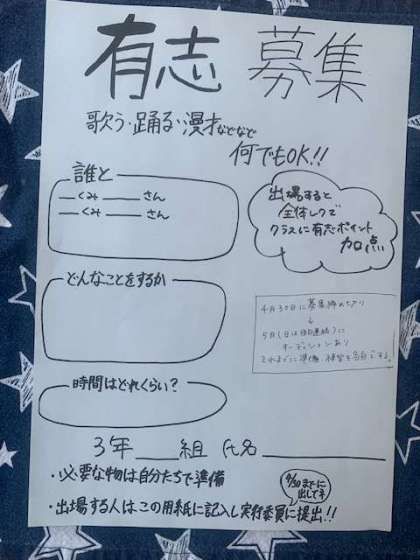 有志 募集
歌う・踊る・漫才などなど
何でもOK!!
誰と
＿くみ＿＿さん
＿くみ＿＿さん
出場すると
全体レクで
クラスに有志ポイント
加点
どんなことをするか
4月30日に募集締めきり
↓
5月1日は
オーディションあり
それまでに準備、練習を各自する。
時間はどれくらい？
3年＿＿組 氏名＿＿＿＿
・必要な物は自分たちで準備
4/30までに
出してネ
・出場する人はこの用紙に記入し実行委員に提出!!